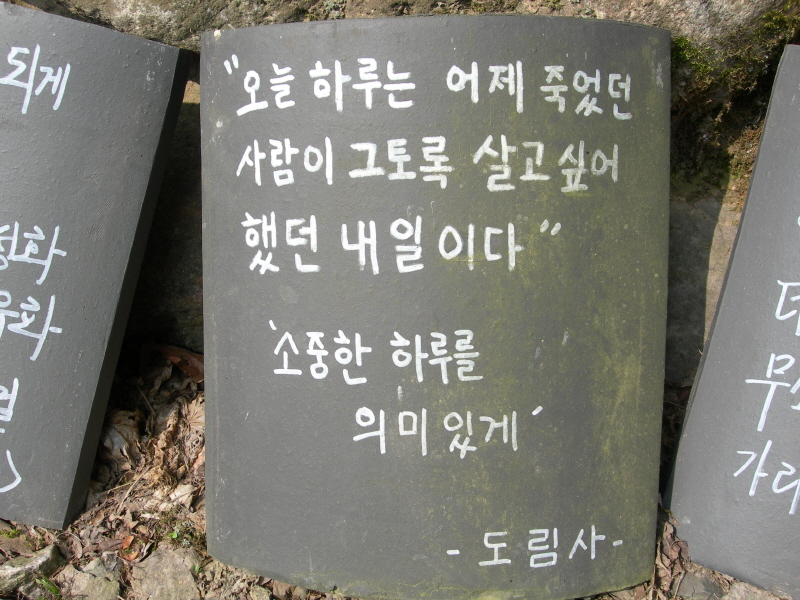 되게
정화
"오늘 하루는 어제 죽었던
사람이 그토록 살고싶어
했던 내일이다"
'소중한 하루를
의미있게'
-도림사-